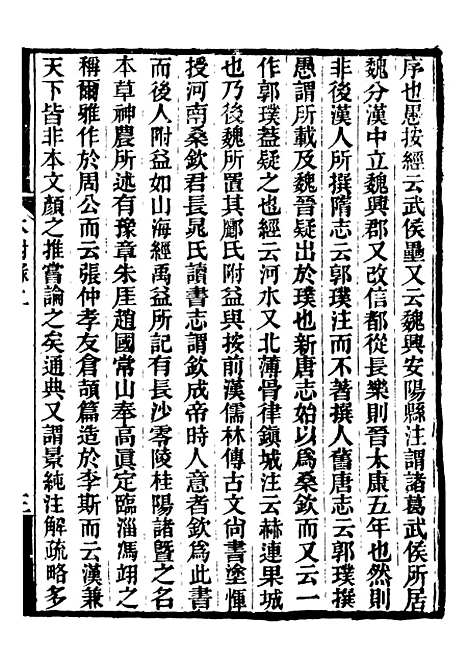 序也愚按經云武侯壘又云魏興安陽縣注謂諸葛武侯所居
魏分漢中立魏興郡又改信都從長樂則晉太康五年也然則
非後漢人所撰隋志云郭璞注而不著撰人舊唐志云郭璞撰
愚謂所載及魏晉疑出於璞也新唐志始以爲桑欽而又云一
作郭璞蓋疑之也經云河水又北薄骨律鎭城注云赫連果城
也乃後魏所置其酈氏附益與按前漢儒林傳古文尙書塗惲
授河南桑欽君長晁氏讀書志謂欽成帝時人意者欽爲此書
而後人附益如山海經禹益所記有長沙零陵桂陽諸曁之名
本草神農所述有豫章朱厓趙國常山奉高眞定臨淄馮翊之
稱爾雅作於周公而云張仲孝友倉頡篇造於李斯而云漢兼
天下皆非本文顏之推嘗論之矣通典又謂景純注解疏略多